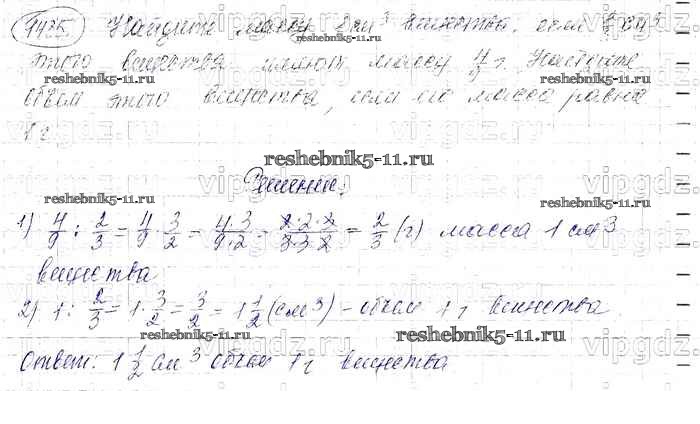 1435 Найдите массу 1 см³ вещества, если 2/3 см³
этого вещества имеют массу 4/9 г. Найдите
объем этого вещества, если его масса равна
1 г.
reshebnik5-11.ru
vipgdz.ru
Решение:
1) 4/9 : 2/3 = 4/9 · 3/2 = 4·3/9·2 = 2·2·3/3·3·2 = 2/3 (г) масса 1 см3
вещества
2) 1 : 2/3 = 1 · 3/2 = 3/2 = 1 1/2 (см3) - объем 1 г вещества
Ответ: 1 1/2 см 3 объем 1 г вещества